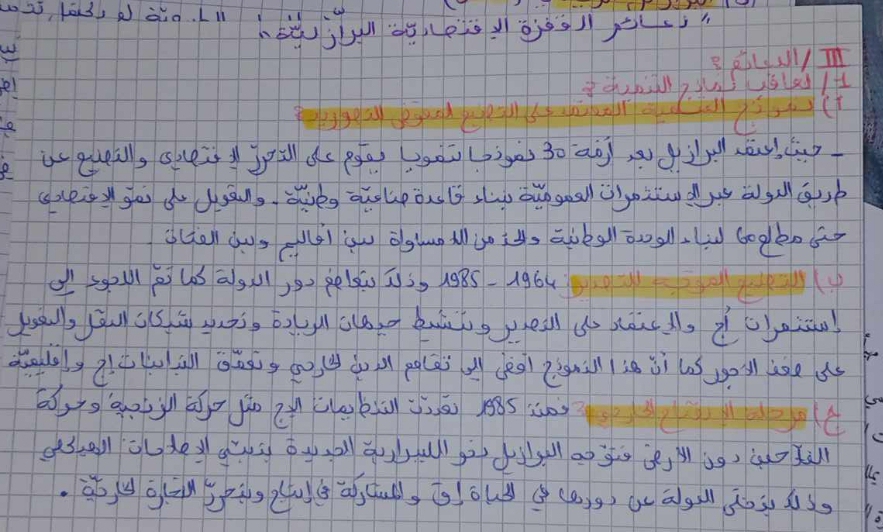 "دعائم القفزة الإقتصاديّة البرازيليّة"
III/ الدعائم:
1/ تعاقب نماذج التنمية:
أ) نموذج التنمية المعتمد على التصنيع لتعويض التوريد:
- حيث إعتمد البرازيل بعد أزمة 30 نموذجا تنمويا يقوم على التحرّر الإقتصادي والتصنيع عن
طريق الدولة عبر الإستثمرات العموميّة بناء قاعدة صناعيّة وطنيّة. والتعويل على نموّ الإقتصادي
حتى مطلع لبناء الوحدة الوطنية والحدّ من اللامساواة بين أقاليم وبين الفئات.
ب) التصنيع الموجه للتصدير: 1964 - 1985 وذلك بتعاظم دور الدولة كما تمّ اللجوء إلى
إستثمرات أج والإعتماد على التصدير وتنشيط جيهات الريادة وتحديد شبكات النقل والتعويل
على ضغط الاجور كما أنّ هذا النموذج أفضى إلى تفاقم الدين الخارجي وتعمّق التباينات إج وإقليميّة
ج) مرحلة الإنفتاح الخارجي: فمنذ 1985 تعدّدت التنظيمات إلج مثل حركة الزنجية وحركة
الفلاّحين دون الأرض فتوجه البرازيل نحو الليبرارية الجديدة بتبنّي الإصلاحات الهيكلي
وذلك بتخلّي الدولة عن دورها في الحياة إق والمشاركة في إنتاج وبتحرّر التجارة الخارجيّة.